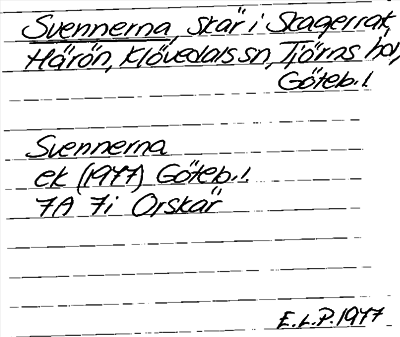 Svennerna, skär i Skagerrak,
Härön, Klövedals sn, Tjörns hd,
Göteb. l.
Svennerna
ek (1977) Göteb. l.
7A 7i Orskär
E.L.P. 1977